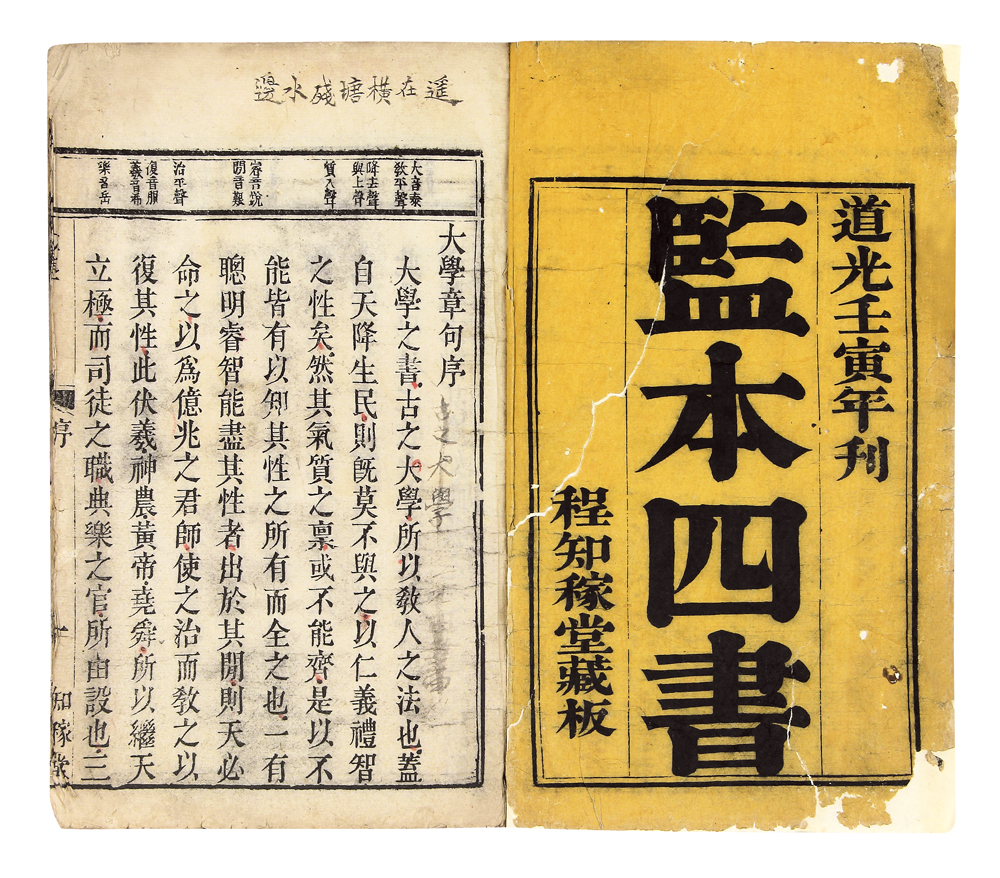 道光壬寅年刊
監本四書
程知稼堂藏板
遥在橫塘殘水邊
大音泰
敎平聲
降去聲
與上聲
質入聲
睿音銳
閒音艱
治平聲
復音服
羲音希
樂音岳
大學章句序
古之大學
大學之書古之大學所以敎人之法也蓋
自天降生民則旣莫不與之以仁義禮智
之性矣然其氣質之稟或不能齊是以不
能皆有以知其性之所有而全之也一有
聰明睿智能盡其性者出於其閒則天必
命之以爲億兆之君師使之治而敎之以
復其性此伏羲神農黃帝堯舜所以繼天
立極而司徒之職典樂之官所由設也三
序
一
知稼堂